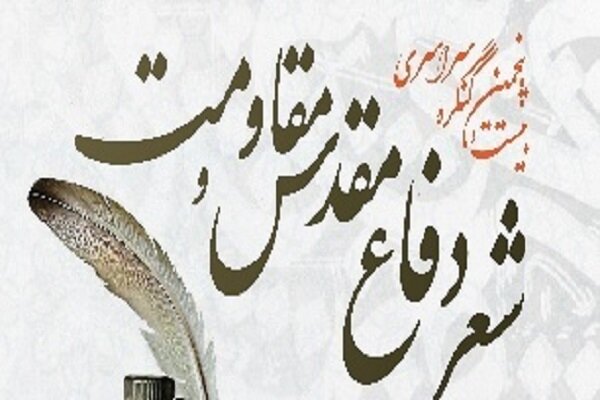 بیست و پنجمین کنگره سراسری
شعر دفاع مقدس و مقاومت